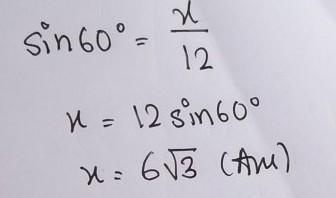 sin60° = x/12
x = 12 sin60°
x = 6√3 (Ans)